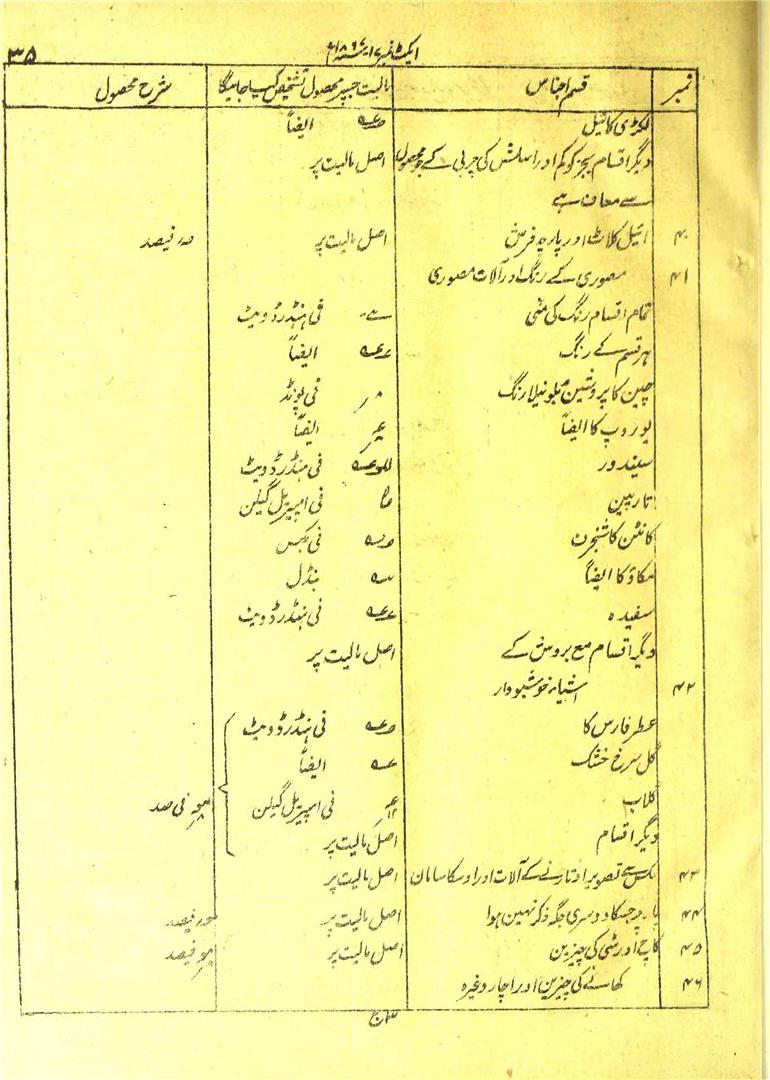 ۳۵ ایکٹ نمبر ۱۷ سنہ ۱۸۶۷ع
نمبر قسم اجناس مالیت جسپر محصول تشخیص کیا جائیگا شرح محصول
لکڑی کا تیل ایضاً
دیگر اقسام بجز کوکم اور اسلش کی چربی کے جو محصول اصل مالیت پر
سے معاف ہے
۴۰ ائیل کلاتھ اور پارچہ فرش اصل مالیت پر فیصد
۴۱ مصوری کے رنگ اور آلات مصوری
تمام اقسام رنگ کی مٹی فی ہنڈرڈ ویٹ
ہر قسم کے رنگ ایضاً
چین کا پروشین بلو نیلا رنگ فی پونڈ
یوروپ کا ایضاً ایضاً
سیندور فی ہنڈرڈ ویٹ
تارپین فی امپیریل گیلن
کانٹن کا شنجرف فی بکس
مکاؤ کا ایضاً بنڈل
سفیدہ فی ہنڈرڈ ویٹ
دیگر اقسام مع بروش کے اصل مالیت پر
۴۲ اشیاء خوشبودار
عطر فارس کا فی ہنڈرڈ ویٹ
گل سرخ خشک ایضاً
گلاب فی امپیریل گیلن فی صد
دیگر اقسام اصل مالیت پر
۴۳ عکس سے تصویر اوتارنے کے آلات اور اوسکا سامان اصل مالیت پر
۴۴ پارچہ جسکا دوسری جگہ ذکر نہین ہوا اصل مالیت پر فیصد
۴۵ کاچ اور مٹی کی چیزین اصل مالیت پر فیصد
۴۶ کھانے کی چیزین اور اچار وغیرہ